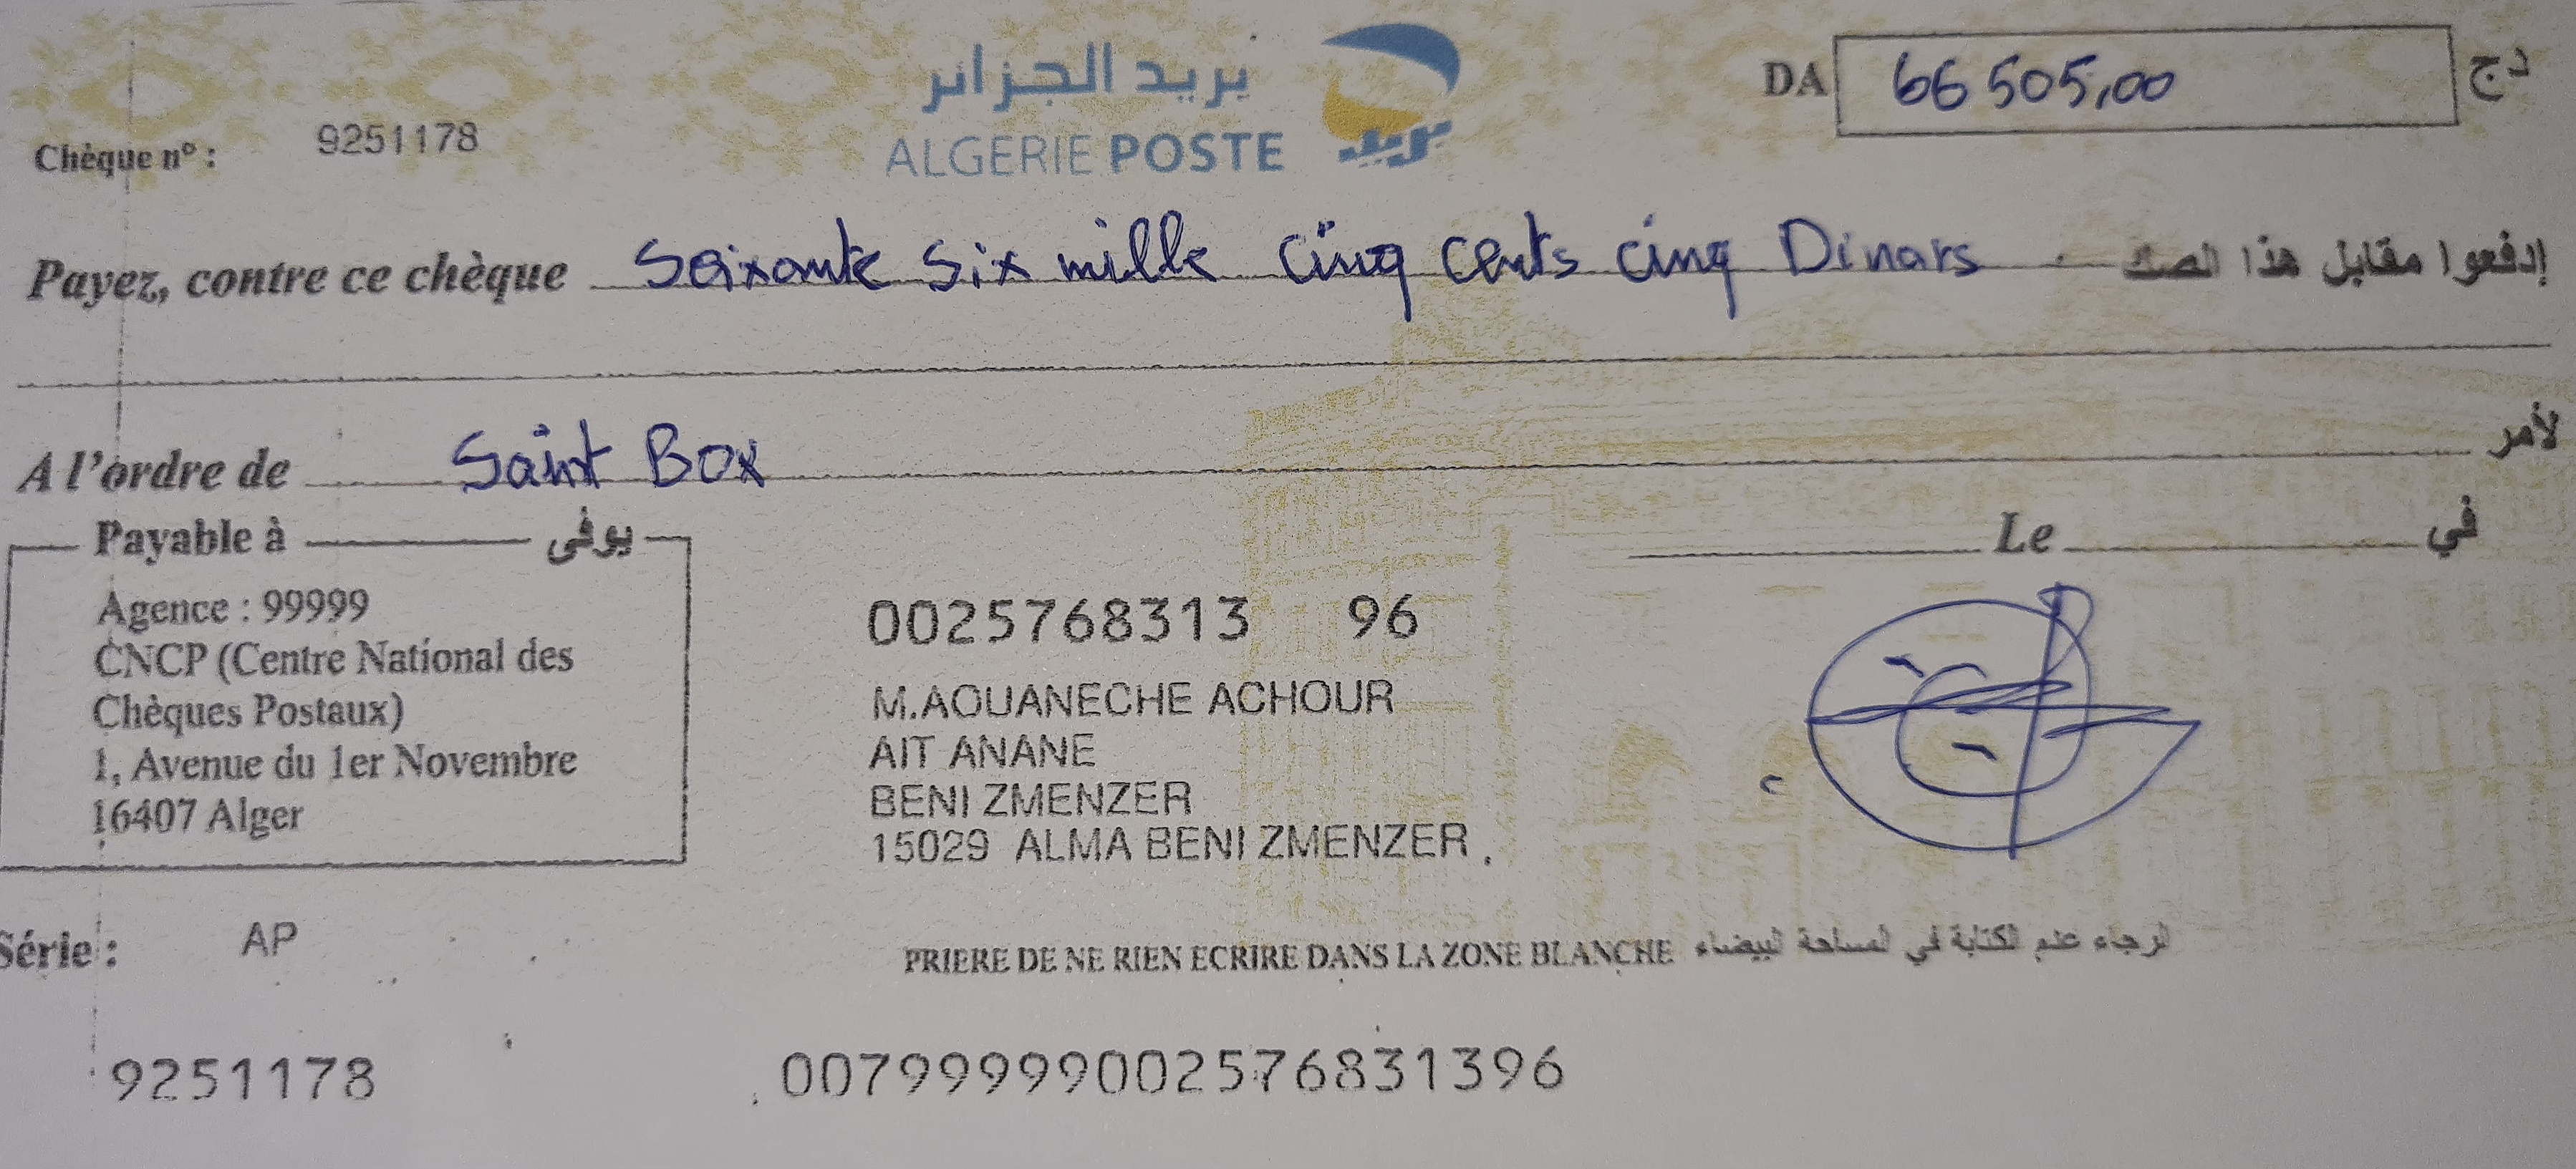 بريد الجزائر
ALGERIE POSTE
بريد
DA 66 505,00 دج
Chèque n° : 9251178
Payez, contre ce chèque Soixante Six mille Cinq Cents Cinq Dinars إدفعوا مقابل هذا الصك
A l'ordre de Saint Box لأمر
Payable à يوفى
Le في
Agence : 99999
CNCP (Centre National des
Chèques Postaux)
1, Avenue du 1er Novembre
16407 Alger
0025768313 96
M.AOUANECHE ACHOUR
AIT ANANE
BENI ZMENZER
15029 ALMA BENI ZMENZER
Série : AP
PRIERE DE NE RIEN ECRIRE DANS LA ZONE BLANCHE الرجاء عدم الكتابة في المساحة البيضاء
9251178
00799999002576831396